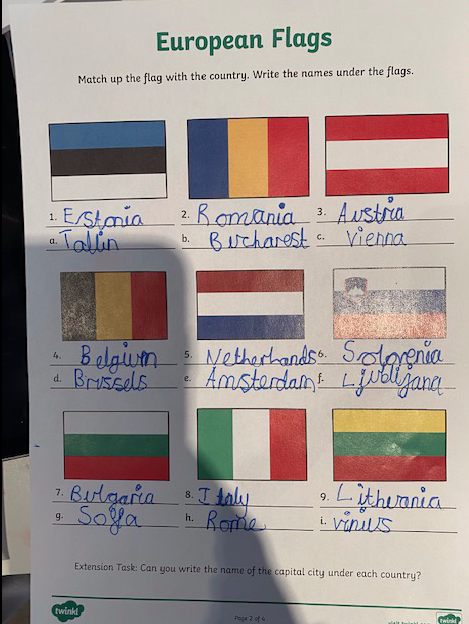 European Flags
Match up the flag with the country. Write the names under the flags.
1. Estonia 2. Romania 3. Austria
a. Tallin b. Bucharest c. Vienna
4. Belgium 5. Netherlands 6. Slovenia
d. Brussels e. Amsterdam f. Ljublijana
7. Bulgaria 8. Italy 9. Lithuania
g. Sofia h. Rome i. vinius
Extension Task: Can you write the name of the capital city under each country?
twinkl Page 2 of 4 visit twinkl twinkl